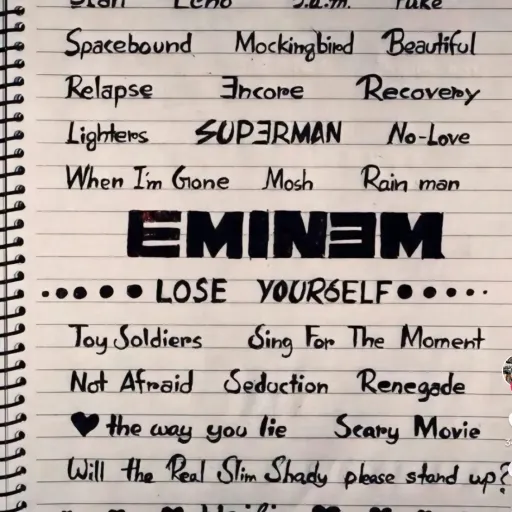 Stan Echo 3.a.m. Puke
Spacebound Mockingbird Beautiful
Relapse Encore Recovery
Lighters SUPERMAN No-Love
When I'm Gone Mosh Rain man
EMINEM
LOSE YOURSELF
Toy Soldiers Sing For The Moment
Not Afraid Seduction Renegade
♥ the way you lie Scary Movie
Will the Real Slim Shady please stand up?